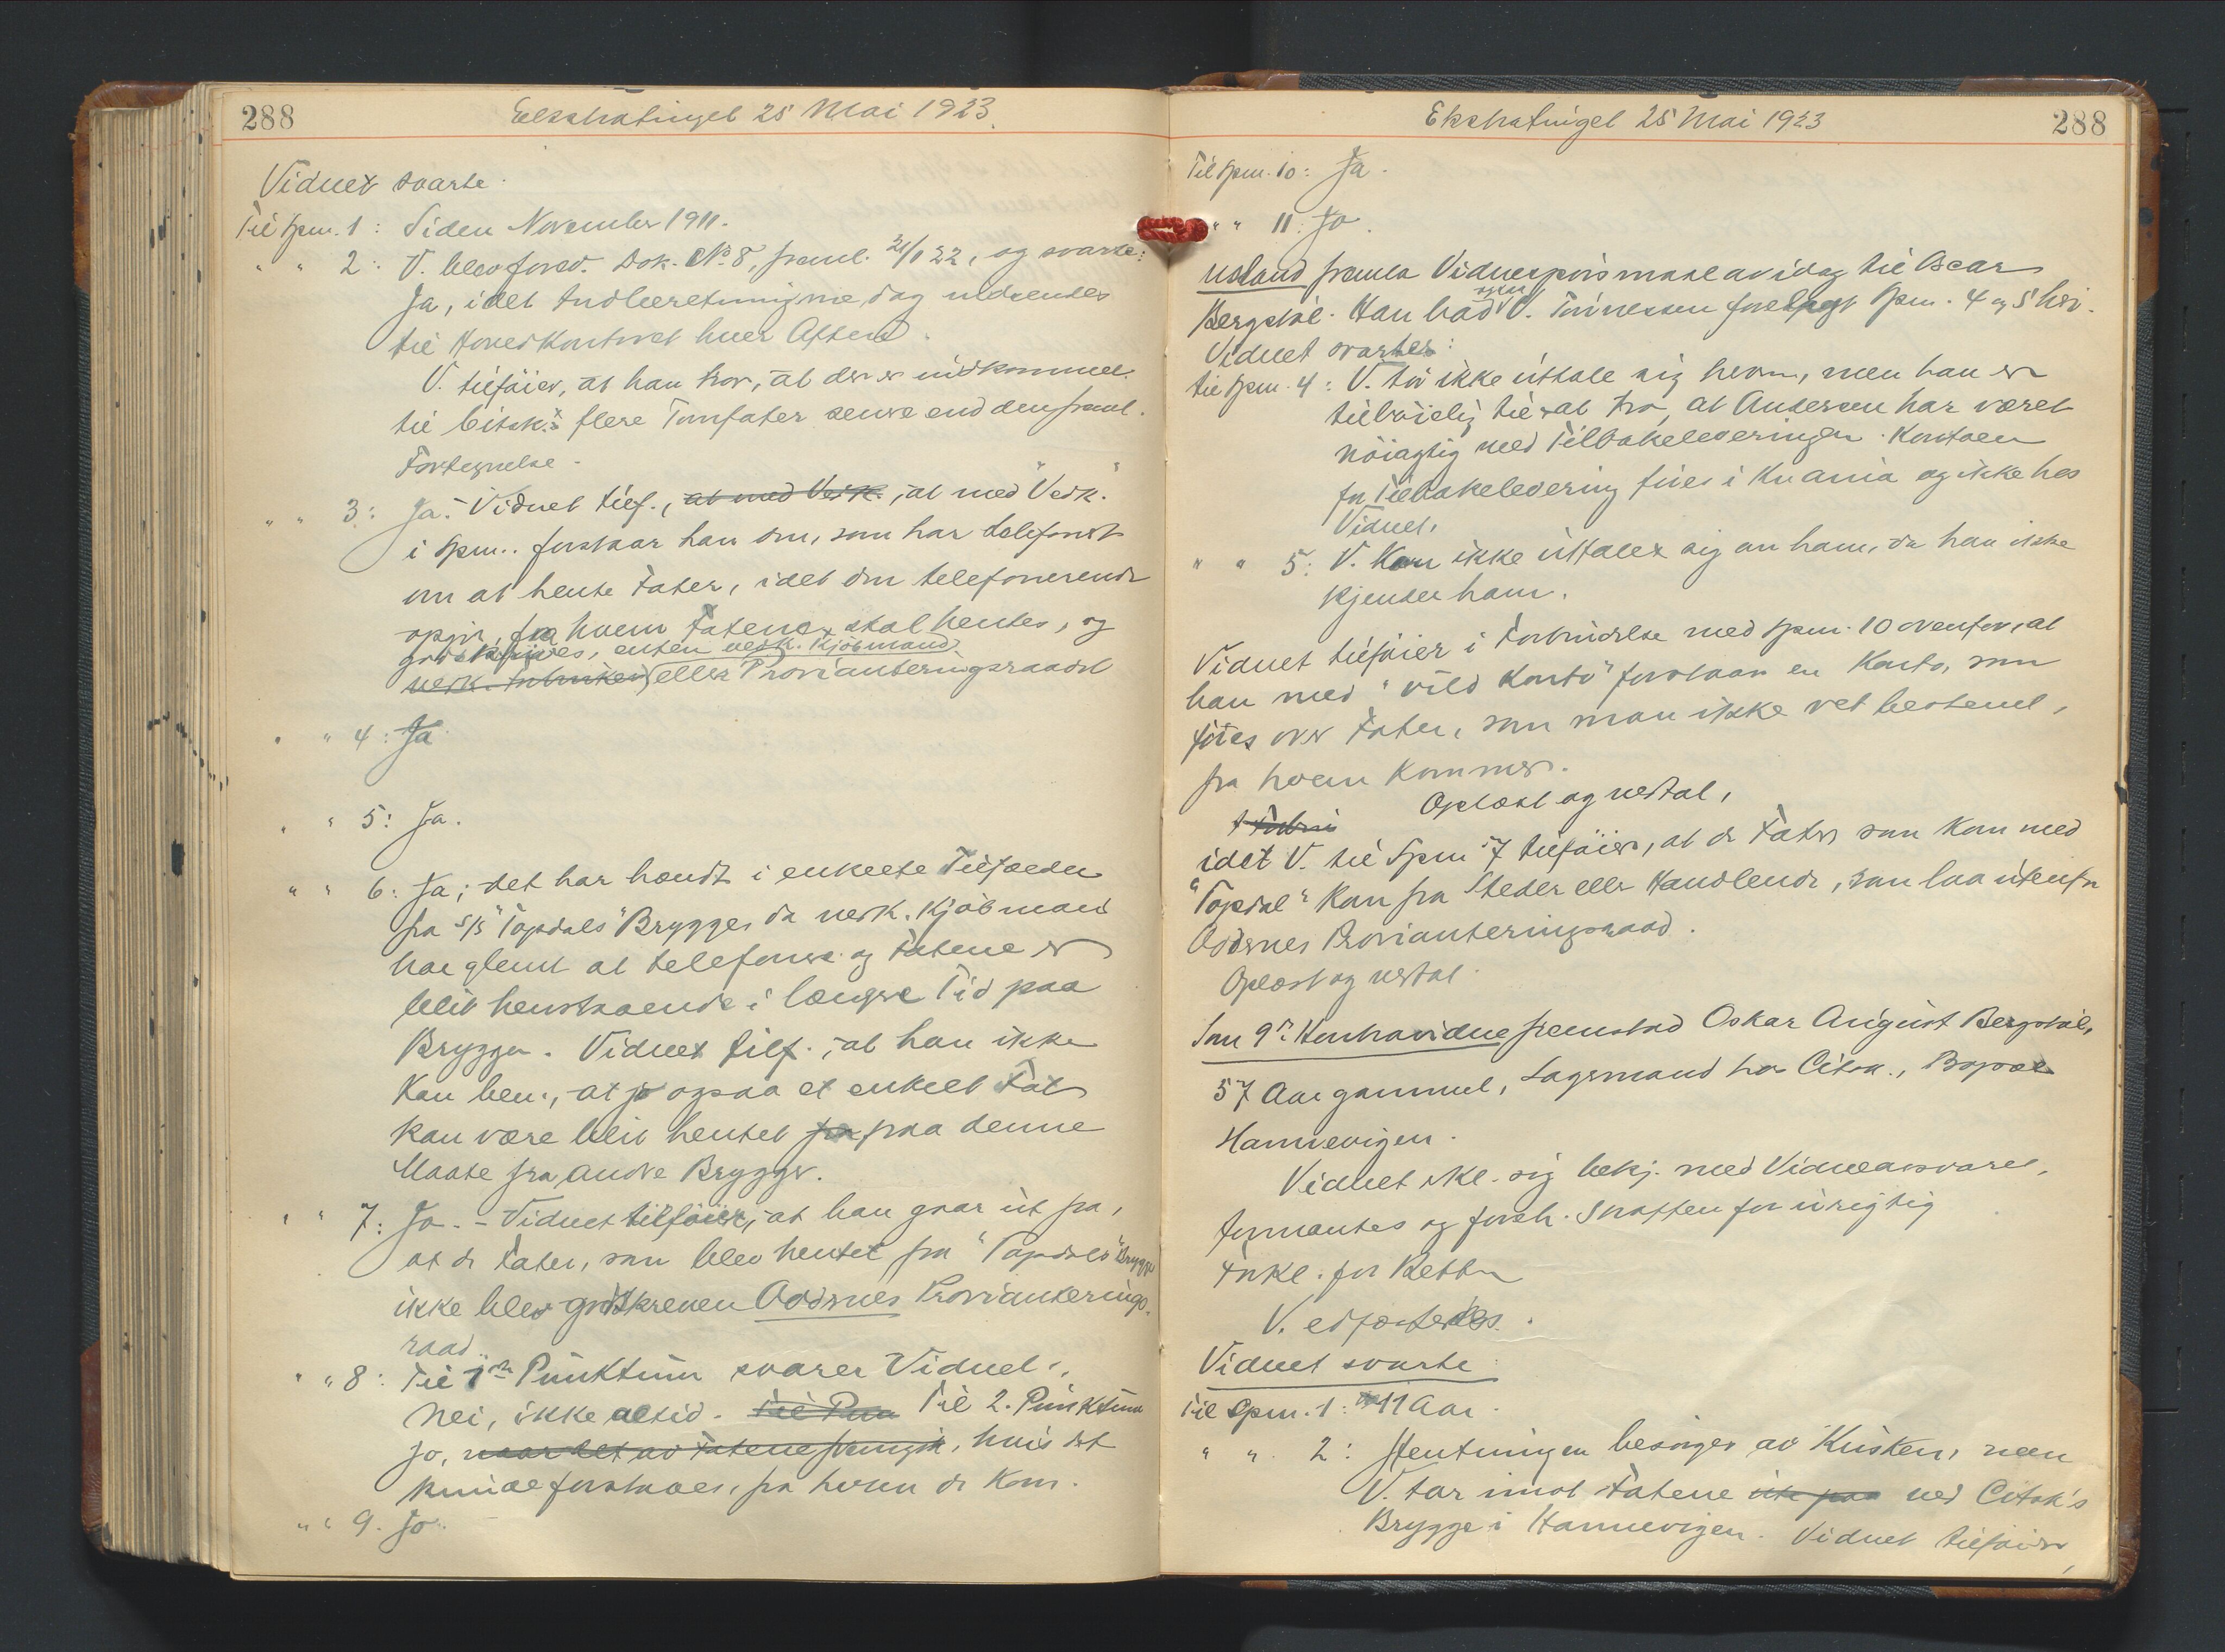 288 Ekstratinget 25 Mai 1923
Vidnet svarte.
Til Spm. 1: Siden November 1911.
" " 2: V. blev forev. Dok. No 8, freml. 21/1 22, og svarte:
Ja, idet Indleveringerne dag utsendes
til Hovedkontoret hver Aften.
V. tilføier, at han tror, at der er indkommet
til Citok's flere Tomfater senere end den freml.
Fortegnelse.
" " 3: Ja. Vidnet tilf., at med Vedk., at med "Vedk."
i Spm. forstaar han den, som har telefonert
om at hente Fater, idet den telefonerende
opgir, fra hvem Fatene skal hentes, og
godskrives, enten vedk. Kjøbmand,
vedk. eller Provianteringsraadet
" " 4: Ja
" " 5: Ja.
" " 6: Ja; det har hændt i enkelte Tilfælder
fra S/S "Topdals" Brygge, da vedk. Kjøbmand
har glemt at telefonere og Fatene er
blit henstaaende i længere Tid paa
Bryggen. Vidnet tilf., at han ikke
kan ben., at ogsaa et enkelt Fat
kan være blit hentet fra paa denne
Maate fra andre Brygger.
" " 7: Jo. - Vidnet tilføier, at han gaar ut fra,
at de Fater, som blev hentet fra "Topdals" Brygge
ikke blev godskreven Oddernes Provianterings-
raad.
" " 8: Til 1ste Punktum svarer Vidnet:
Nei, ikke altid. Til Pun Til 2. Punktum
Jo, naar det av Fatene fremgik, hvis det
kunde forstaaes, fra hvem de kom.
" " 9. Jo.
Ekstratinget 25 Mai 1923 288
Til Spm. 10: Ja.
" " 11: Jo.
Ustrud freml. Vidnespørsmaal av idag til Oscar
Bergstøl. Han bad ogsaa V. Tønnessen forelagt Spm. 4 og 5 hri.
Vidnet svarte:
Til Spm. 4: V. tør ikke uttale sig herom, men han er
tilbøielig til at tro, at Andersen har været
nøiagtig med Tilbakeleveringen. Kontoen
for Tilbakelevering føres i Kr.ania og ikke hos
Vidnet.
" " 5: V. kan ikke uttale sig om ham, da han ikke
kjender ham.
Vidnet tilføier i Forbindelse med Spm. 10 ovenfor, at
han med "vild Konto" forstaar en Konto, som
føres over Fater, som man ikke vet bestemt,
fra hvem kommer.
Oplæst og vedtat,
idet V. til Spm 7 tilføier, at de Fater som kom med
"Topdal" kom fra Steder eller Handlende, som laa utenfor
Oddernes Provianteringsraad.
Oplæst og vedtat.
Som 9de Kontravidne fremstod Oskar August Bergstøl,
57 Aar gammel, Lagermand hos Citok., Bopæl
Hannevigen.
Vidnet erkl. sig bekj. med Vidneansvaret,
formantes og foreh. Straffen for urigtig
Forkl. for Retten
V. edfæstedes.
Vidnet svarte:
Til Spm. 1: 11 Aar.
" " 2: Hentningen besørges av Kusken, men
V. tar imot Fatene ute paa ved Citok's
Brygge i Hannevigen. Vidnet tilføier,